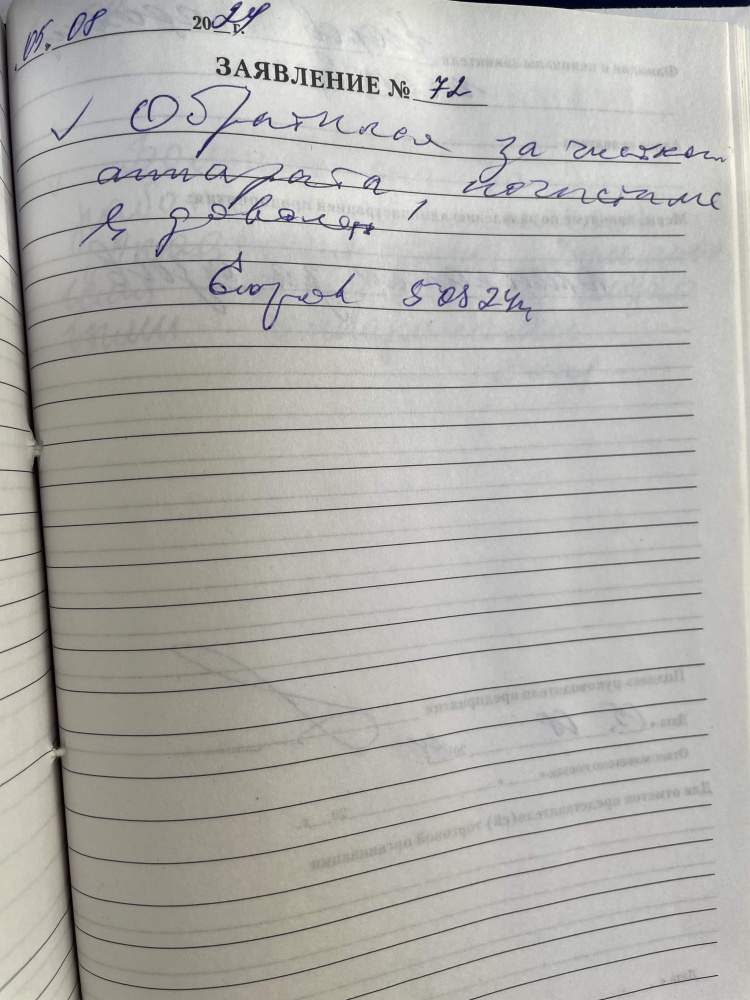 05. 08 2024 г.
ЗАЯВЛЕНИЕ № 72
✓ Обратился за чисткой
аппарата, почистили
я доволен!
5 08 24г